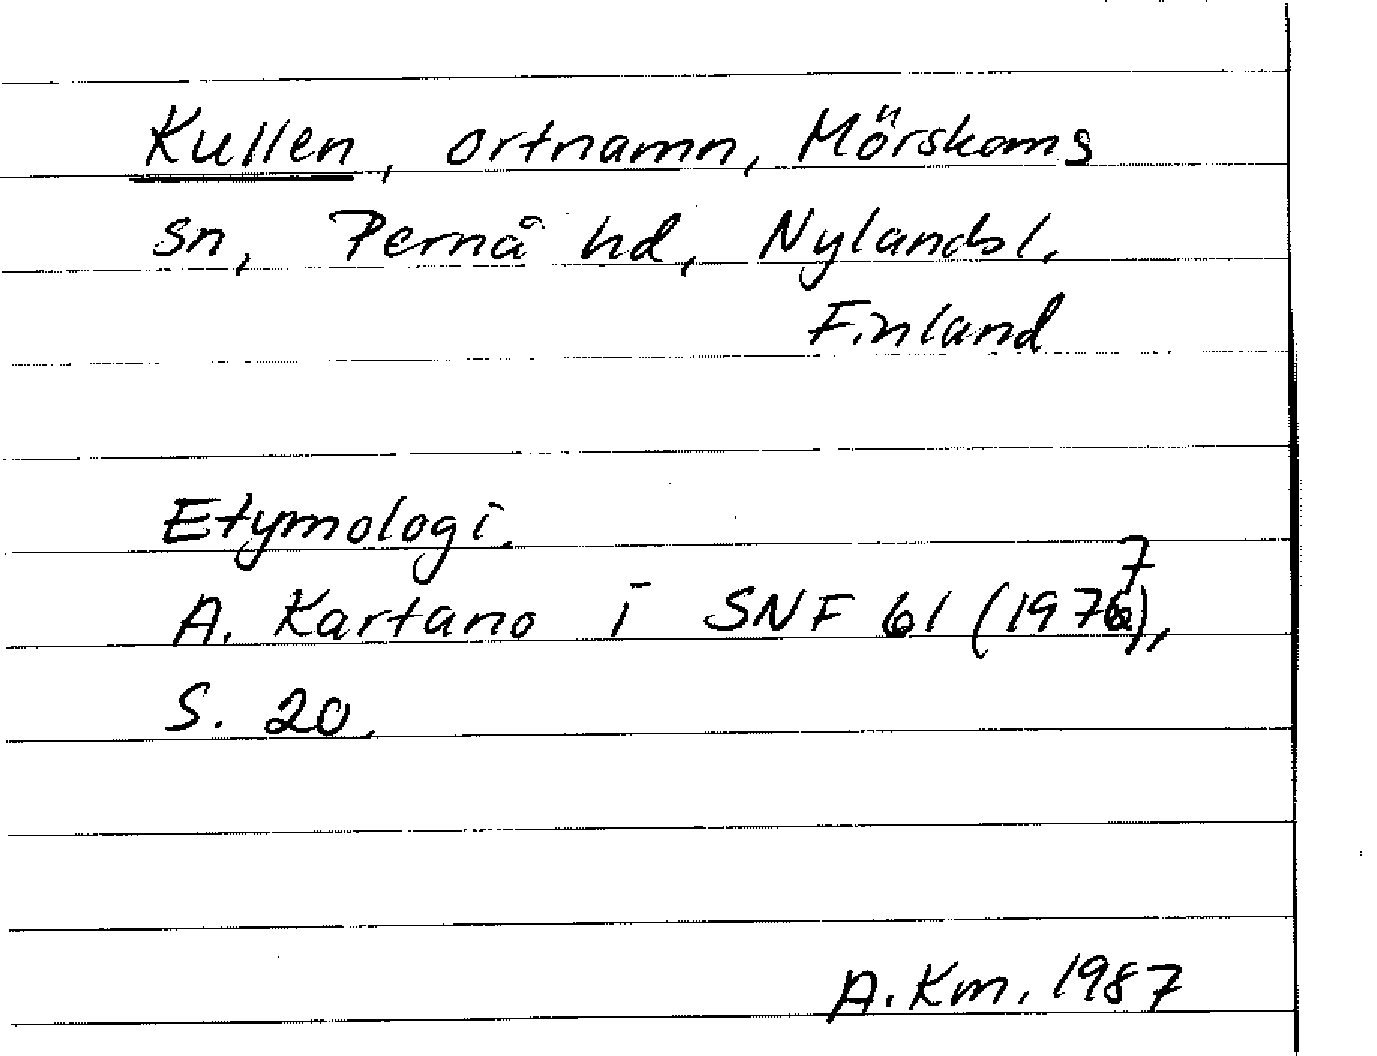 Kullen, ortnamn, Mörskoms
sn, Pernå hd, Nylandsl.
Finland
Etymologi.
A. Kartano i SNF 61 (1977),
S. 20.
A. Km. 1987